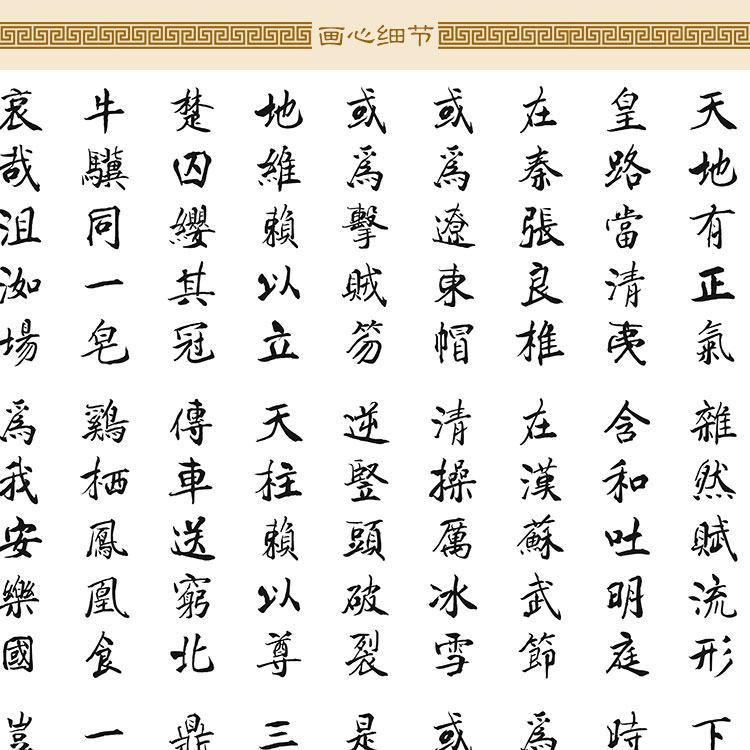 画心细节
天地有正氣 雜然賦流形 下
皇路當清夷 含和吐明庭 時
在秦張良椎 在漢蘇武節 爲
或爲遼東帽 清操厲冰雪 或
或爲擊賊笏 逆豎頭破裂 是
地維賴以立 天柱賴以尊 三
楚囚纓其冠 傳車送窮北 鼎
牛驥同一皂 鷄栖鳳凰食 一
哀哉沮洳場 爲我安樂國 豈